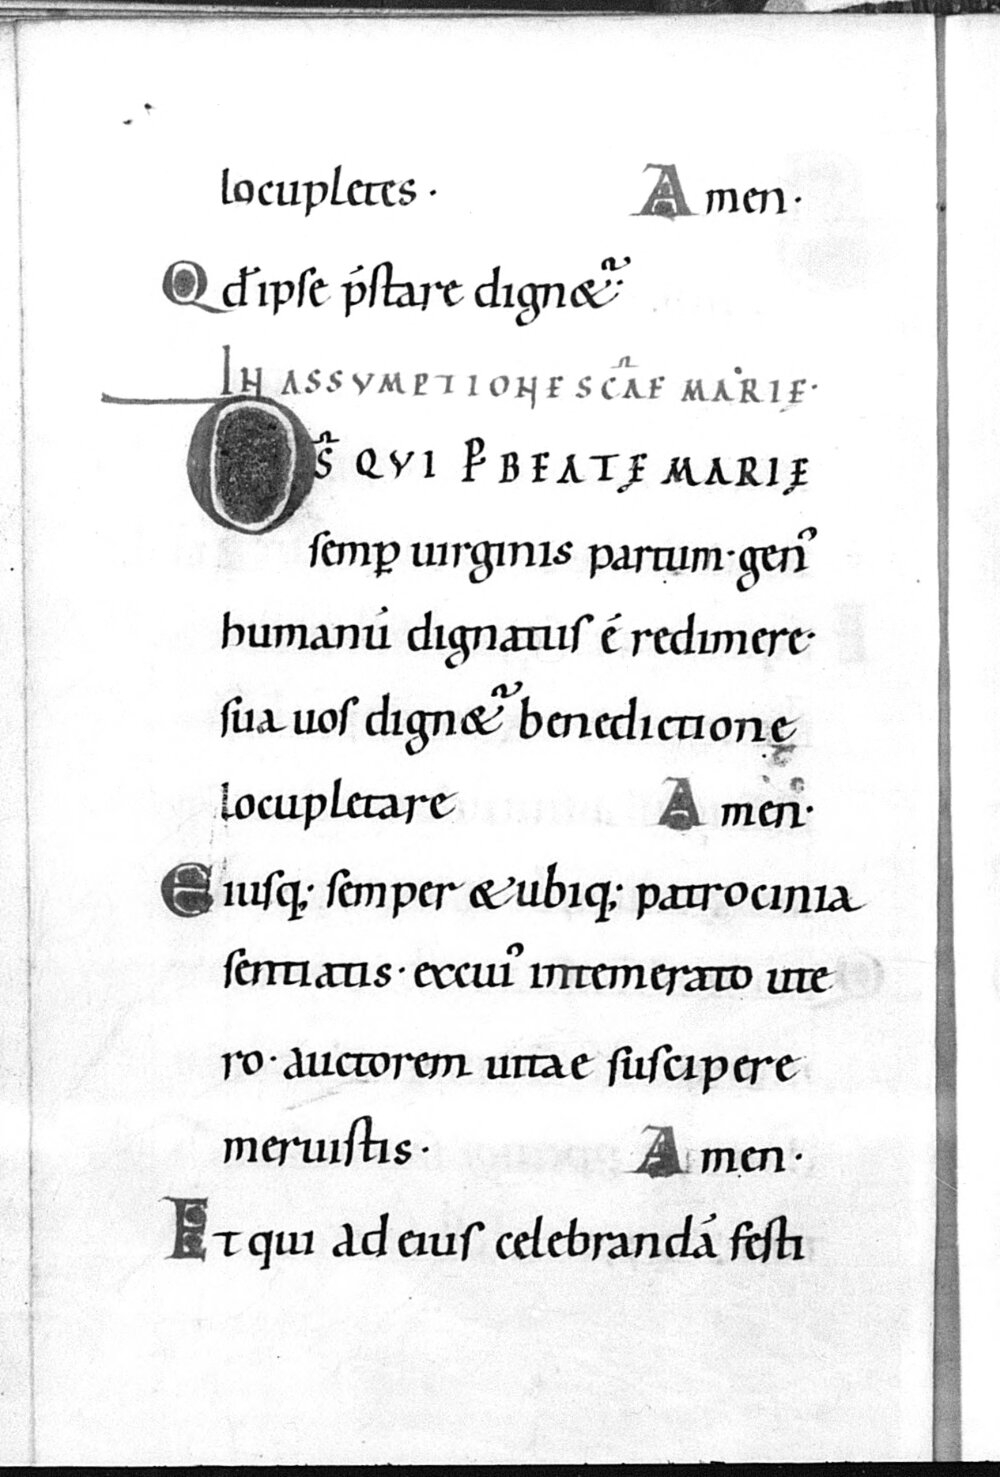 locupletes · Amen ·
Qd̄ ipse p̄stare dign&᷑ ·
IN ASSVMPTIONE SC̄AE MARIE ·
DS̄ QVI P̄ BEATĘ MARIĘ
semꝑ uirginis partum · gen᾽
humanū dignatus ē redimere ·
sua uos dign&᷑ benedictione
locupletare Amen ·
Eiusq; semper & ubiq; patrocinia
sentiatis · excui᾽ intemerato ute
ro · auctorem uitae suscipere
meruistis · Amen ·
Et qui ad eius celebrandā festi